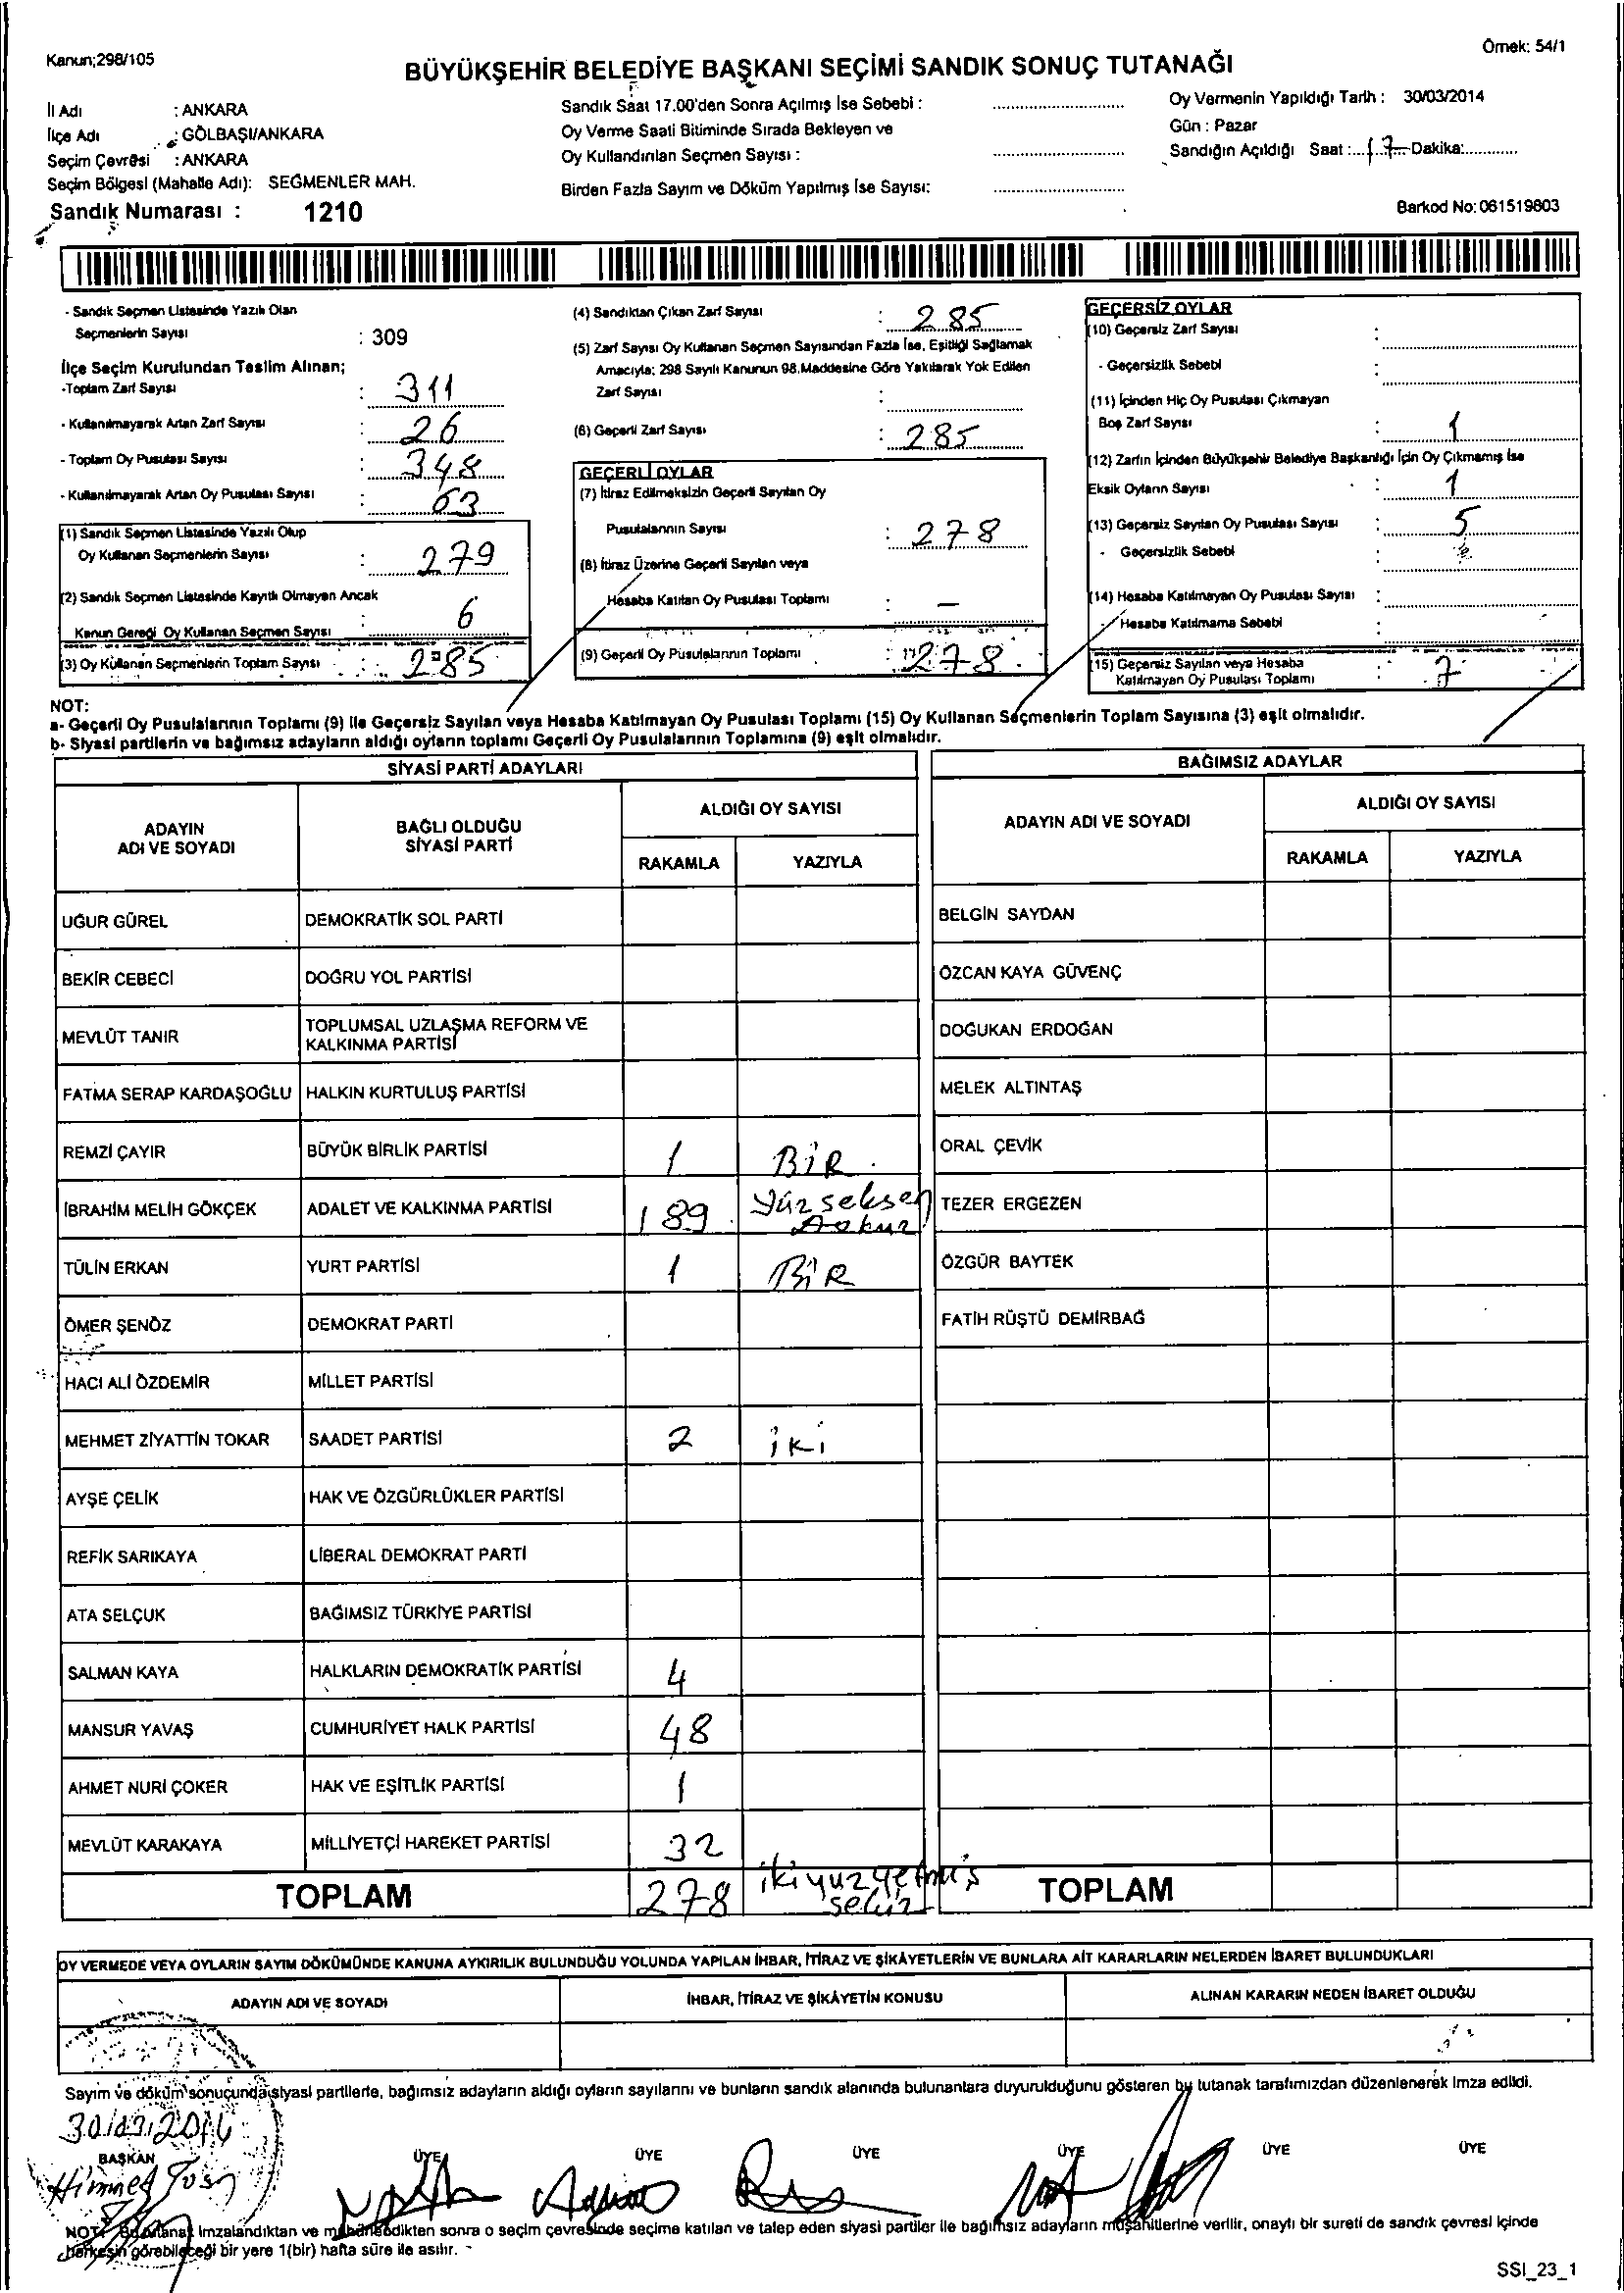 Kanun;298/105
Örnek: 54/1
BÜYÜKŞEHİR BELEDİYE BAŞKANI SEÇİMİ SANDIK SONUÇ TUTANAĞI
İl Adı : ANKARA
İlçe Adı : GÖLBAŞI/ANKARA
Seçim Çevresi : ANKARA
Seçim Bölgesi (Mahalle Adı): SEĞMENLER MAH.
Sandık Numarası : 1210
Sandık Saat 17.00'den Sonra Açılmış İse Sebebi :
Oy Verme Saati Bitiminde Sırada Bekleyen ve
Oy Kullandırılan Seçmen Sayısı :
Birden Fazla Sayım ve Döküm Yapılmış İse Sayısı:
Oy Vermenin Yapıldığı Tarih : 30/03/2014
Gün : Pazar
Sandığın Açıldığı Saat :...17...Dakika:
Barkod No:061519803
- Sandık Seçmen Listesinde Yazılı Olan
Seçmenlerin Sayısı : 309
İlçe Seçim Kurulundan Teslim Alınan;
-Toplam Zarf Sayısı : 311
- Kullanılmayarak Artan Zarf Sayısı : 26
- Toplam Oy Pusulası Sayısı : 348
- Kullanılmayarak Artan Oy Pusulası Sayısı : 63
(1) Sandık Seçmen Listesinde Yazılı Olup
Oy Kullanan Seçmenlerin Sayısı : 279
(2) Sandık Seçmen Listesinde Kayıtlı Olmayan Ancak
Kanun Gereği Oy Kullanan Seçmen Sayısı : 6
(3) Oy Kullanan Seçmenlerin Toplam Sayısı : 285
(4) Sandıktan Çıkan Zarf Sayısı : 285
(5) Zarf Sayısı Oy Kullanan Seçmen Sayısından Fazla İse, Eşitliği Sağlamak
Amacıyla; 298 Sayılı Kanunun 98.Maddesine Göre Yakılarak Yok Edilen
Zarf Sayısı :
(6) Geçerli Zarf Sayısı : 285
GEÇERLİ OYLAR
(7) İtiraz Edilmeksizin Geçerli Sayılan Oy
Pusulalarının Sayısı : 278
(8) İtiraz Üzerine Geçerli Sayılan veya
Hesaba Katılan Oy Pusulası Toplamı : –
(9) Geçerli Oy Pusulalarının Toplamı : 278
GEÇERSİZ OYLAR
(10) Geçersiz Zarf Sayısı :
- Geçersizlik Sebebi :
(11) İçinden Hiç Oy Pusulası Çıkmayan
Boş Zarf Sayısı : 1
(12) Zarfın İçinden Büyükşehir Belediye Başkanlığı İçin Oy Çıkmamış İse
Eksik Oyların Sayısı : 1
(13) Geçersiz Sayılan Oy Pusulası Sayısı : 5
- Geçersizlik Sebebi :
(14) Hesaba Katılmayan Oy Pusulası Sayısı :
- Hesaba Katılmama Sebebi :
(15) Geçersiz Sayılan veya Hesaba
Katılmayan Oy Pusulası Toplamı : 7
NOT:
a- Geçerli Oy Pusulalarının Toplamı (9) ile Geçersiz Sayılan veya Hesaba Katılmayan Oy Pusulası Toplamı (15) Oy Kullanan Seçmenlerin Toplam Sayısına (3) eşit olmalıdır.
b- Siyasi partilerin ve bağımsız adayların aldığı oyların toplamı Geçerli Oy Pusulalarının Toplamına (9) eşit olmalıdır.
SİYASİ PARTİ ADAYLARI
ADAYIN ADI VE SOYADI
BAĞLI OLDUĞU SİYASİ PARTİ
ALDIĞI OY SAYISI
RAKAMLA YAZIYLA
BAĞIMSIZ ADAYLAR
ADAYIN ADI VE SOYADI
ALDIĞI OY SAYISI
RAKAMLA YAZIYLA
UĞUR GÜREL DEMOKRATİK SOL PARTİ BELGİN SAYDAN
BEKİR CEBECİ DOĞRU YOL PARTİSİ ÖZCAN KAYA GÜVENÇ
MEVLÜT TANIR TOPLUMSAL UZLAŞMA REFORM VE KALKINMA PARTİSİ DOĞUKAN ERDOĞAN
FATMA SERAP KARDAŞOĞLU HALKIN KURTULUŞ PARTİSİ MELEK ALTINTAŞ
REMZİ ÇAYIR BÜYÜK BİRLİK PARTİSİ 1 BİR ORAL ÇEVİK
İBRAHİM MELİH GÖKÇEK ADALET VE KALKINMA PARTİSİ 189 Yüzseksen Dokuz TEZER ERGEZEN
TÜLİN ERKAN YURT PARTİSİ 1 BİR ÖZGÜR BAYTEK
ÖMER ŞENÖZ DEMOKRAT PARTİ FATİH RÜŞTÜ DEMİRBAĞ
HACI ALİ ÖZDEMİR MİLLET PARTİSİ
MEHMET ZİYATTİN TOKAR SAADET PARTİSİ 2 iki
AYŞE ÇELİK HAK VE ÖZGÜRLÜKLER PARTİSİ
REFİK SARIKAYA LİBERAL DEMOKRAT PARTİ
ATA SELÇUK BAĞIMSIZ TÜRKİYE PARTİSİ
SALMAN KAYA HALKLARIN DEMOKRATİK PARTİSİ 4
MANSUR YAVAŞ CUMHURİYET HALK PARTİSİ 48
AHMET NURİ ÇOKER HAK VE EŞİTLİK PARTİSİ 1
MEVLÜT KARAKAYA MİLLİYETÇİ HAREKET PARTİSİ 32
TOPLAM 278 ikiyuzyetmiş sekiz TOPLAM
OY VERMEDE VEYA OYLARIN SAYIM DÖKÜMÜNDE KANUNA AYKIRILIK BULUNDUĞU YOLUNDA YAPILAN İHBAR, İTİRAZ VE ŞİKÂYETLERİN VE BUNLARA AİT KARARLARIN NELERDEN İBARET BULUNDUKLARI
ADAYIN ADI VE SOYADI İHBAR, İTİRAZ VE ŞİKÂYETİN KONUSU ALINAN KARARIN NEDEN İBARET OLDUĞU
Sayım ve döküm sonucunda siyasi partilerle, bağımsız adayların aldığı oyların sayılarını ve bunların sandık alanında bulunanlara duyurulduğunu gösteren bu tutanak tarafımızdan düzenlenerek imza edildi.
30/03/2014
BAŞKAN ÜYE ÜYE ÜYE ÜYE ÜYE ÜYE
NOT: Bu tutanak imzalandıktan ve mühürlendikten sonra o seçim çevresinde seçime katılan ve talep eden siyasi partiler ile bağımsız adayların müşahitlerine verilir, onaylı bir sureti de sandık çevresi içinde
herkesin görebileceği bir yere 1(bir) hafta süre ile asılır.
SSI_23_1